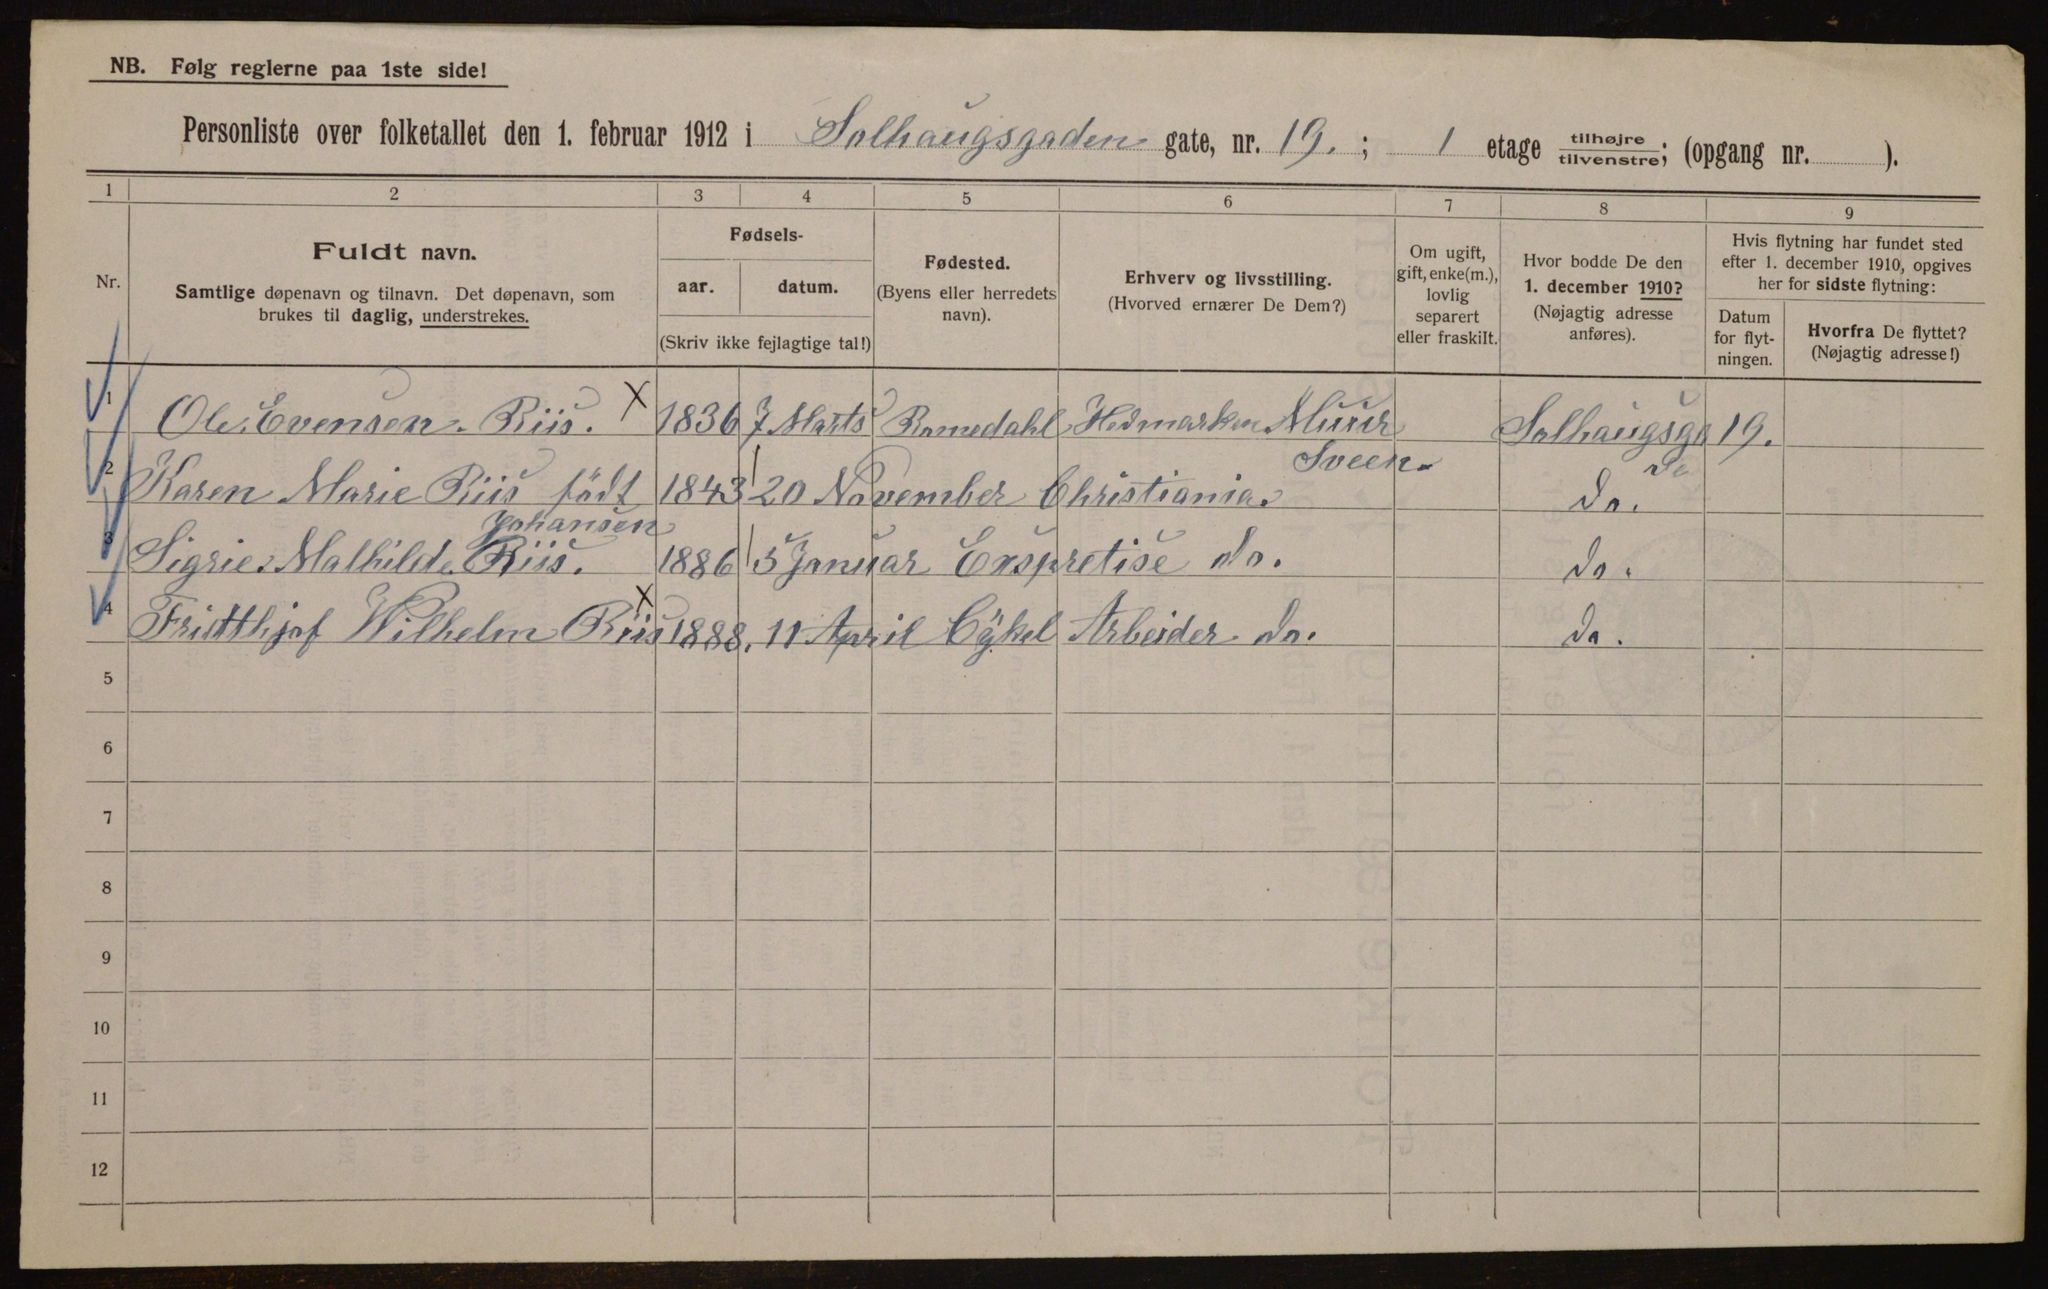 NB. Følg reglerne paa 1ste side!
Personliste over folketallet den 1. februar 1912 i Solhaugsgaden gate, nr. 19. ; 1 etage tilhøjre/tilvenstre; (opgang nr. ).
1 2 3 4 5 6 7 8 9
Nr.
Fuldt navn.
Samtlige døpenavn og tilnavn. Det døpenavn, som
brukes til daglig, understrekes.
Fødsels-
aar. datum.
(Skriv ikke fejlagtige tal!)
Fødested.
(Byens eller herredets
navn).
Erhverv og livsstilling.
(Hvorved ernærer De Dem?)
Om ugift,
gift, enke(m.),
lovlig
separert
eller fraskilt.
Hvor bodde De den
1. december 1910?
(Nøjagtig adresse
anføres).
Hvis flytning har fundet sted
efter 1. december 1910, opgives
her for sidste flytning:
Datum
for flyt-
ningen.
Hvorfra De flyttet?
(Nøjagtig adresse!)
1 Ole. Evensen. Riis. X 1836 7 Marts Romedahl Hedmarken Murer Solhaugsga 19.
Sveen
2 Karen Marie Riis födt 1843 20 November Christiania. do.
Johansen
3 Sigrie. Mathilde Riis. 1886 5 Januar Exspretise do. do.
4 Fridthjof Wilhelm Riis X 1888. 11 April Cykel Arbeider do. do.
5
6
7
8
9
10
11
12